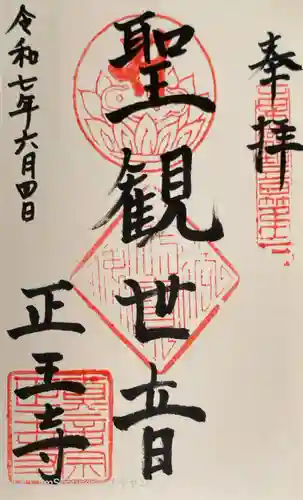 奉拝
聖観世音
令和七年六月四日
正王寺